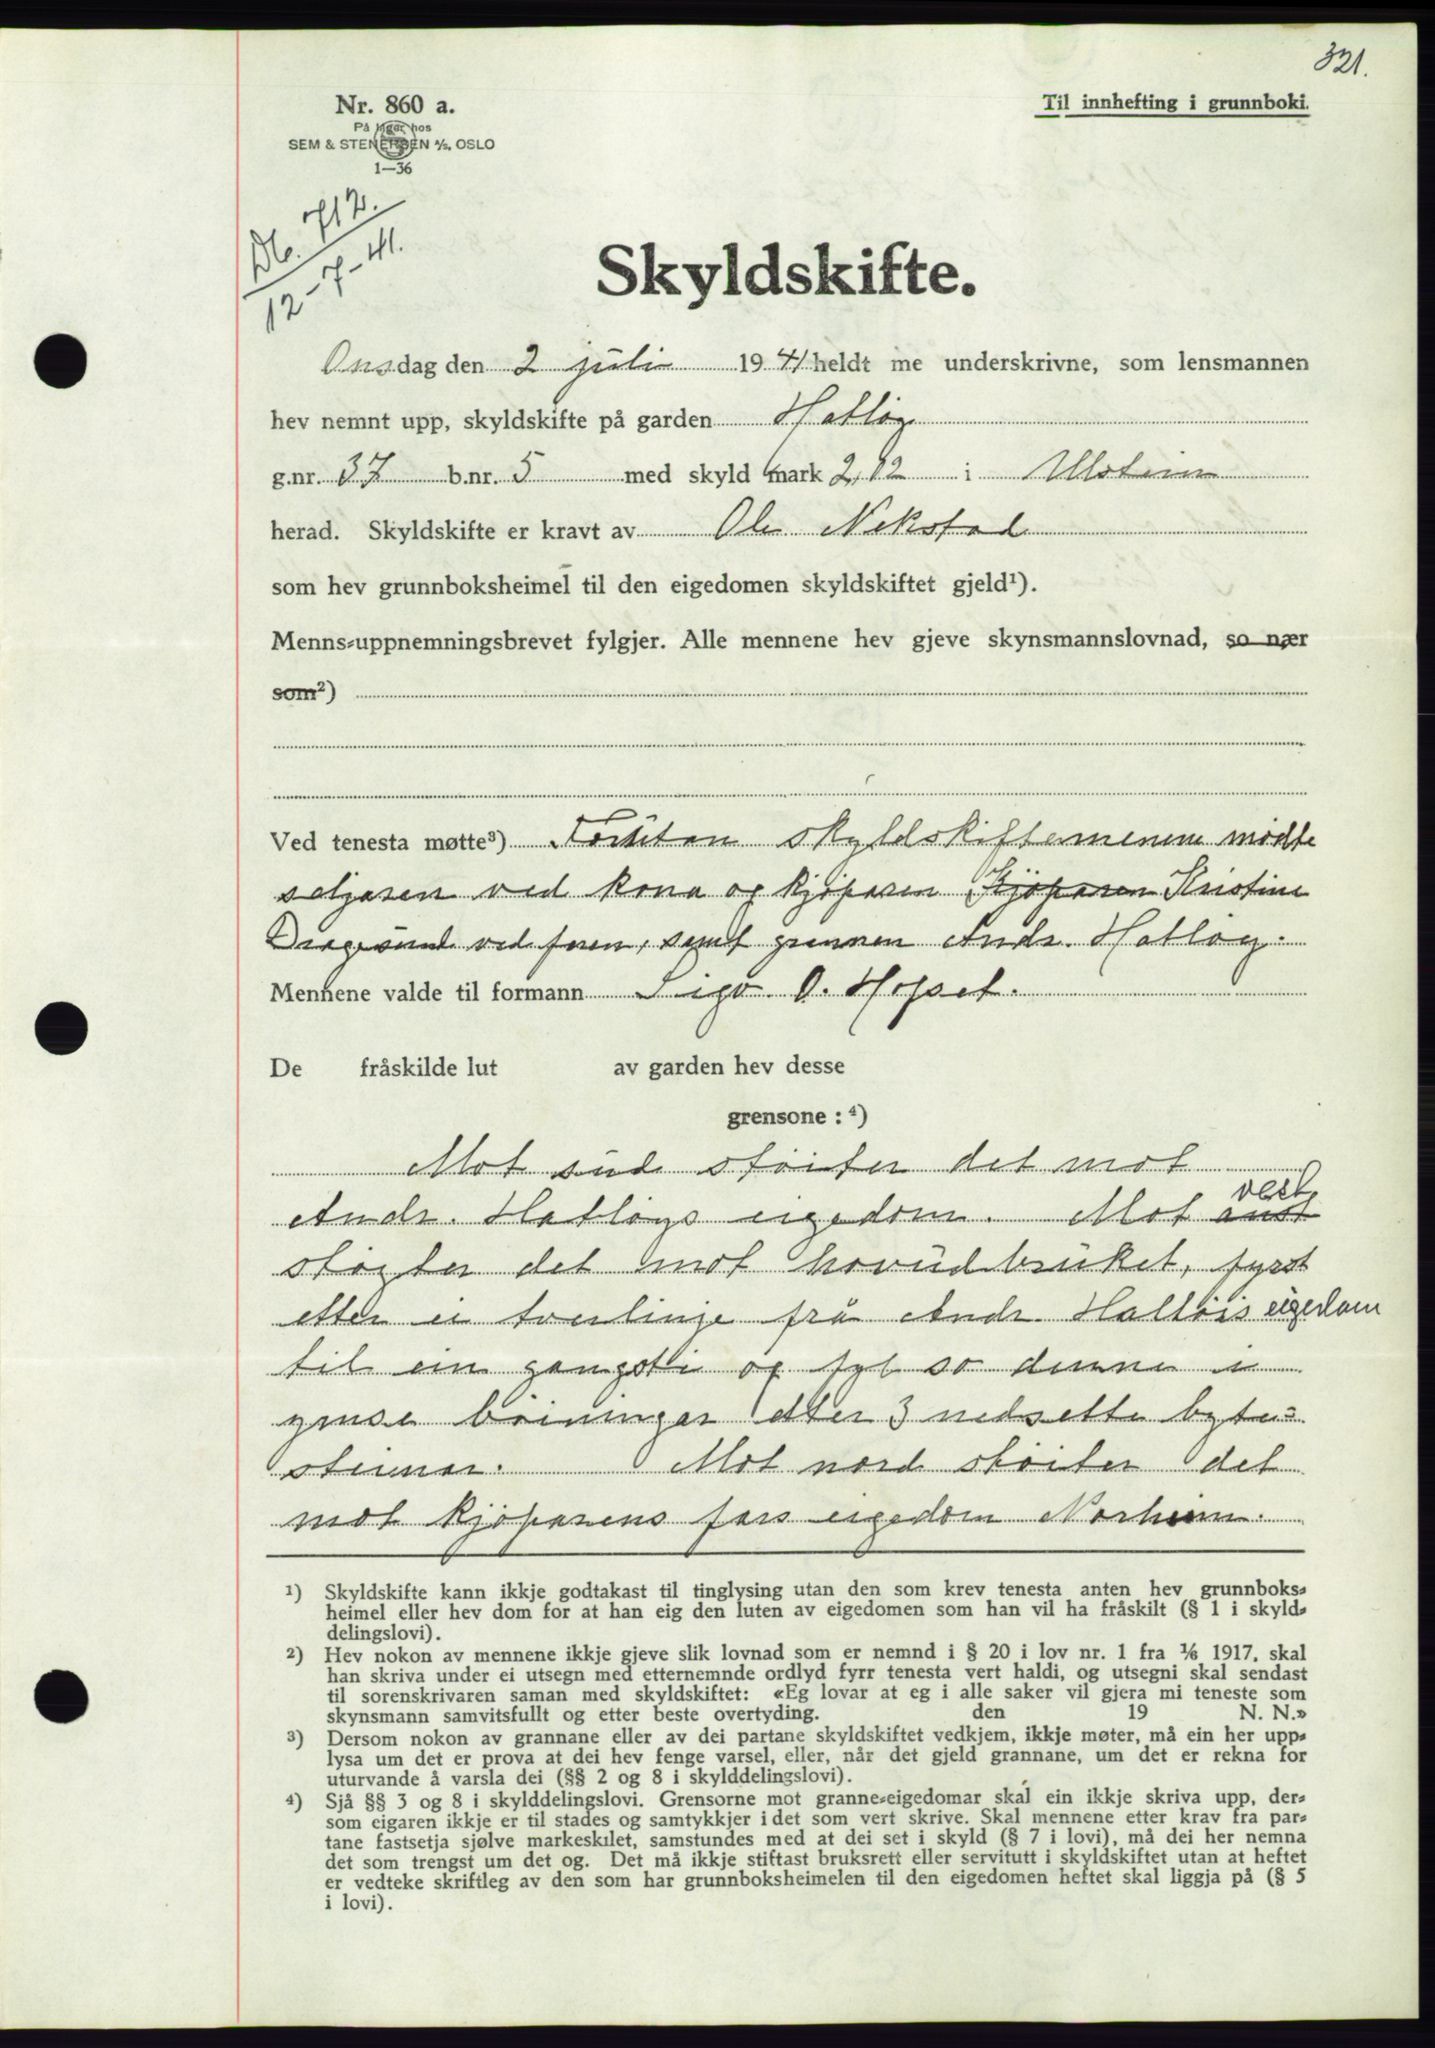 321.
Nr. 860 a.
Til innhefting i grunnboki.
På lager hos
SEM & STENERSEN A/S, OSLO
1—36
Db. 712.
12-7-41.
Skyldskifte.
Onsdag den 2 juli 1941 heldt me underskrivne, som lensmannen
hev nemnt upp, skyldskifte på garden Hatløy
g.nr. 37 b.nr. 5 med skyld mark 2,12 i Ulstein
herad. Skyldskifte er kravt av Ole Nekstad
som hev grunnboksheimel til den eigedomen skyldskiftet gjeld¹).
Menns-uppnemningsbrevet fylgjer. Alle mennene hev gjeve skynsmannslovnad, so nær
som²)
Ved tenesta møtte³) Forutan skyldskiftemenene mødte
seljaren ved kona og kjøparen Kjøparen Kristine
Dragsund ved faren, samt grannen Andr. Hatløy.
Mennene valde til formann Sigv. O. Hopset.
De fråskilde lut av garden hev desse
grensone : ⁴)
Mot süd støiter det mot
Andr. Hatløys eigedom. Mot aust vest
støyter det mot hovüdbruket, fyrst
etter ei tverlinje frå Andr. Hatløis eigedom
til ein gangsti og fyl so denne i
ymse böiningar etter 3 nedsette byte-
steinar. Mot nord støiter det
mot kjøparens fars eigedom Norheim.
¹) Skyldskifte kann ikkje godtakast til tinglysing utan den som krev tenesta anten hev grunnboks-
heimel eller hev dom for at han eig den luten av eigedomen som han vil ha fråskilt (§ 1 i skyld-
delingslovi).
²) Hev nokon av mennene ikkje gjeve slik lovnad som er nemnd i § 20 i lov nr. 1 fra 1/6 1917, skal
han skriva under ei utsegn med etternemnde ordlyd fyrr tenesta vert haldi, og utsegni skal sendast
til sorenskrivaren saman med skyldskiftet: «Eg lovar at eg i alle saker vil gjera mi teneste som
skynsmann samvitsfullt og etter beste overtyding. den 19 N. N.»
³) Dersom nokon av grannane eller av dei partane skyldskiftet vedkjem, ikkje møter, må ein her upp-
lysa um det er prova at dei hev fenge varsel, eller, når det gjeld grannane, um det er rekna for
uturvande å varsla dei (§§ 2 og 8 i skylddelingslovi).
⁴) Sjå §§ 3 og 8 i skylddelingslovi. Grensorne mot granne-eigedomar skal ein ikkje skriva upp, der-
som eigaren ikkje er til stades og samtykkjer i det som vert skrive. Skal mennene etter krav fra par-
tane fastsetja sjølve markeskilet, samstundes med at dei set i skyld (§ 7 i lovi), må dei her nemna
det som trengst um det og. Det må ikkje stiftast bruksrett eller servitutt i skyldskiftet utan at heftet
er vedteke skriftleg av den som har grunnboksheimelen til den eigedomen heftet skal liggja på (§ 5
i lovi).